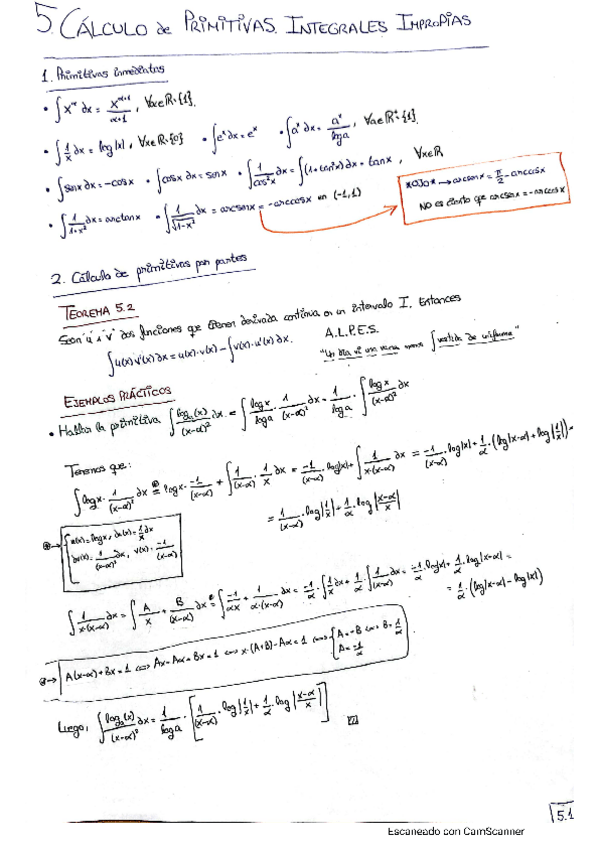 5. CÁLCULO de PRIMITIVAS. INTEGRALES IMPROPIAS
1. Primitivas inmediatas
• ∫x^α dx = x^(α+1)/(α+1), ∀α∈ℝ\{1}.
• ∫1/x dx = log|x|, ∀x∈ℝ\{0} • ∫e^x dx = e^x • ∫a^x dx = a^x/log a, ∀a∈ℝ⁺\{1}.
• ∫sen x dx = -cos x • ∫cos x dx = sen x • ∫1/cos²x dx = ∫(1+tan²x) dx = tan x, ∀x∈ℝ
• ∫1/(1+x²) dx = arctan x • ∫1/√(1-x²) dx = arcsen x = -arccos x en (-1,1)
*OJO* → arcsen x = π/2 - arccos x
NO es cierto que arcsen x = -arccos x
2. Cálculo de primitivas por partes
TEOREMA 5.2
Sean 'u' y 'v' dos funciones que tienen derivada continua en un intervalo I. Entonces
∫u(x)·v'(x) dx = u(x)·v(x) - ∫v(x)·u'(x) dx.
A.L.P.E.S.
"Un día vi una vaca ∫vestida de uniforme"
EJEMPLOS PRÁCTICOS
• Hallar la primitiva ∫log_a(x)/(x-α)² dx = ∫log x/log a · 1/(x-α)² dx = 1/log a · ∫log x/(x-α)² dx
Tenemos que:
∫log x · 1/(x-α)² dx = log x · -1/(x-α) + ∫1/(x-α) · 1/x dx = -1/(x-α) · log|x| + ∫1/(x·(x-α)) dx = -1/(x-α) · log|x| + 1/α · (log|x-α| + log|1/x|) =
= 1/(x-α) · log|1/x| + 1/α · log|(x-α)/x|
⊛→ u(x) = log x, du(x) = 1/x dx
dv(x) = 1/(x-α)² dx, v(x) = -1/(x-α)
∫1/(x·(x-α)) dx = ∫A/x + B/(x-α) dx = ∫-1/(αx) + 1/(α·(x-α)) dx = -1/α · ∫1/x dx + 1/α · ∫1/(x-α) dx = -1/α · log|x| + 1/α · log|x-α| =
= 1/α · (log|x-α| - log|x|)
⊛→ A(x-α) + Bx = 1 ⟺ Ax - Aα + Bx = 1 ⟺ x·(A+B) - Aα = 1 ⟺ {A = -B ⟺ B = 1/α
A = -1/α
Luego, ∫log_a(x)/(x-α)² dx = 1/log a · [1/(x-α) · log|1/x| + 1/α · log|(x-α)/x|]
5.1
Escaneado con CamScanner